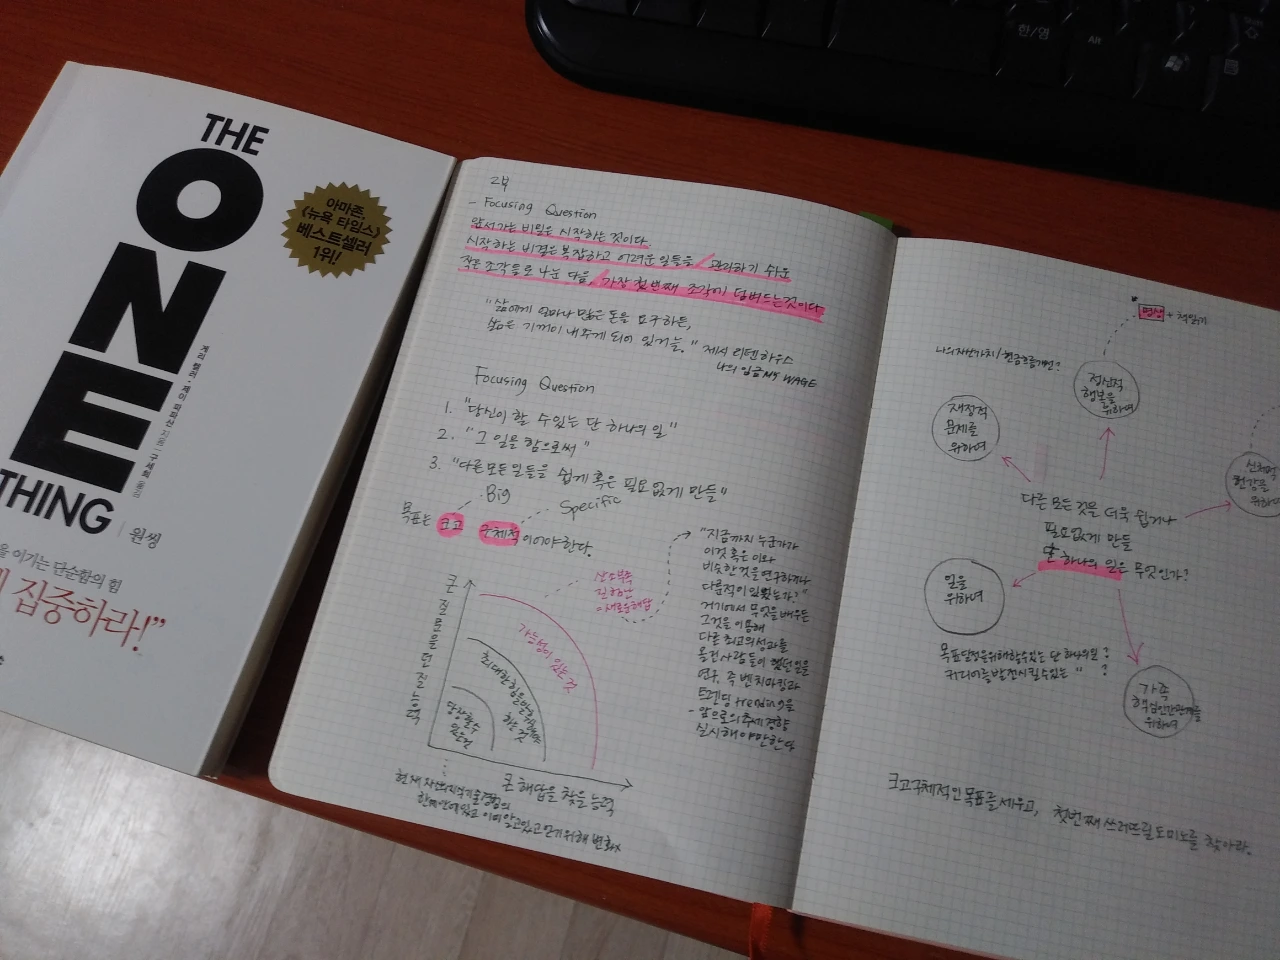 THE
ONE
THING
원씽
아마존,
《뉴욕 타임스》
베스트셀러
1위!
게리 켈러·제이 파파산 지음 | 구세희 옮김
을 이기는 단순함의 힘
집중하라!”
한/영
Alt
2부
- Focusing Question
앞서가는 비밀은 시작하는 것이다
시작하는 비결은 복잡하고 어려운 일들을 / 관리하기 쉬운
작은 조각들로 나눈 다음, / 가장 첫번째 조각에 덤벼드는 것이다
"삶에게 얼마나 많은 돈을 요구하든,
삶은 기꺼이 내주게 되어 있거늘." 제시 리텐하우스
나의 임금 MY WAGE
Focusing Question
1. "당신이 할 수 있는 단 하나의 일"
2. "그 일을 함으로써"
3. "다른 모든 일들을 쉽게 혹은 필요없게 만들"
Big
Specific
목표는 크고 구체적이어야 한다.
큰 질문을 던질 능력
가능성이 있는 것
최대한 힘을 발휘해야 하는 것
당장 할 수 있는 것
큰 해답을 찾을 능력
현재 자신의 지식 기술 경험의
한계 안에 있고 이미 알고 있고 얻기 위해 변화x
"지금까지 누군가가
이것 혹은 이와
비슷한 것을 연구하거나
다룬 적이 있었는가?"
거기에서 무엇을 배우든
그것을 이용해
다른 최고의 성과를
올린 사람들이 했던 일을
연구. 즉 벤치마킹과
트렌딩 trending을
- 앞으로의 추세 경향
실시해야만 한다
명상 + 책읽기
나의 자산가치/현금흐름개선?
정신적
행복을
위하여
재정적
문제를
위하여
신체적
건강을
위하여
다른 모든 것을 더욱 쉽거나
필요없게 만들
단 하나의 일은 무엇인가?
일을
위하여
목표달성을 위해 할 수 있는 단 하나의 일?
커리어를 발전시킬 수 있는 " ?
가족
핵심인간관계를
위하여
크고 구체적인 목표를 세우고, 첫번째 쓰러뜨릴 도미노를 찾아라.